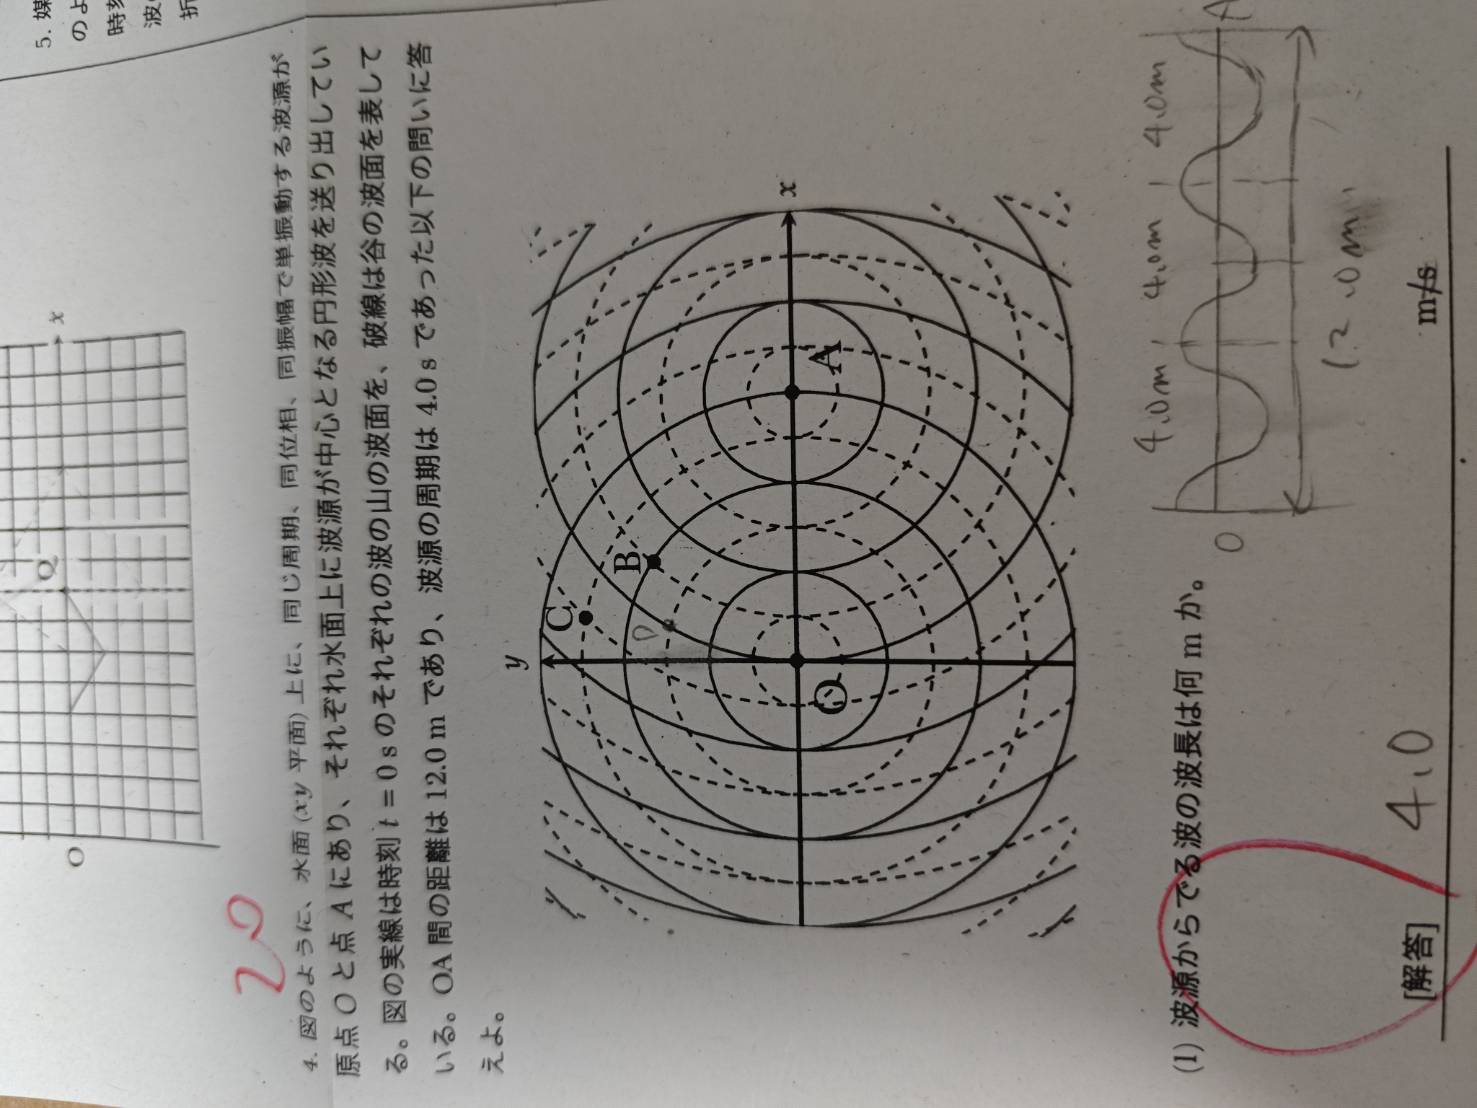 O
Q
x
5. 媒
のよ
時刻
波の
折
20
4. 図のように、水面 (xy 平面) 上に、同じ周期、同位相、同振幅で単振動する波源が
原点 O と点 A にあり、それぞれ水面上に波源が中心となる円形波を送り出してい
る。図の実線は時刻 t = 0 s のそれぞれの波の山の波面を、破線は谷の波面を表して
いる。OA 間の距離は 12.0 m であり、波源の周期は 4.0 s であった以下の問いに答
えよ。
y
C
B
D
x
O
A
(1) 波源からでる波の波長は何 m か。
4.0m 4.0m 4.0m
O
A
12.0m
[解答] 4.0 m/s